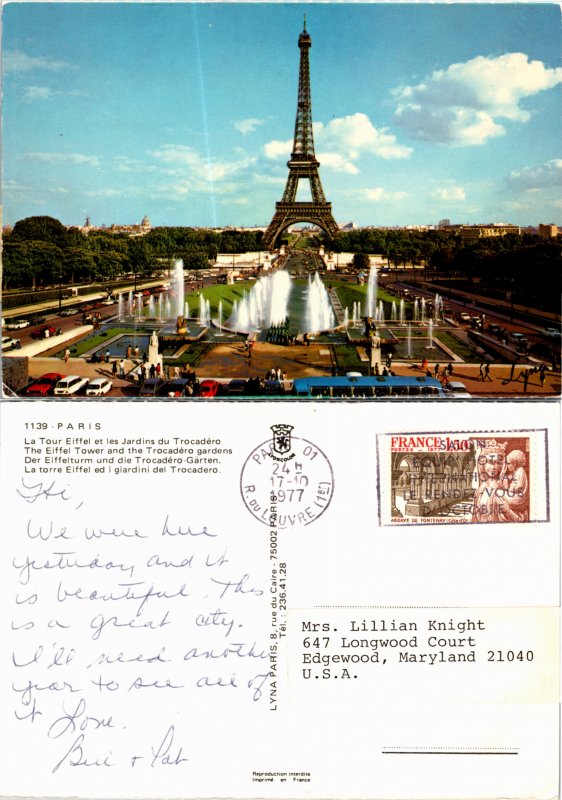 1139 - PARIS
La Tour Eiffel et les Jardins du Trocadéro
The Eiffel Tower and the Trocadéro gardens
Der Eiffelturm und die Trocadéro-Gärten.
La torre Eiffel ed i giardini del Trocadero.
Hi,
We were here
yesterday and it
is beautiful. This
is a great city.
I'll need another
year to see all of
it Love.
Bill + Pat
LYNA PARIS, 8, rue du Caire - 75002 PARIS
Tél.: 236.41.28
LYNCOLOR
PARIS 01
24 H
17-10
1977
R. DU LOUVRE (1er)
FRANCE 1,50
POSTES 1977
SALON
LE RENDEZ-VOUS
D'OCTOBRE
ABBAYE DE FONTENAY-Côte-d'Or
Mrs. Lillian Knight
647 Longwood Court
Edgewood, Maryland 21040
U.S.A.
Reproduction interdite
Imprimé en France